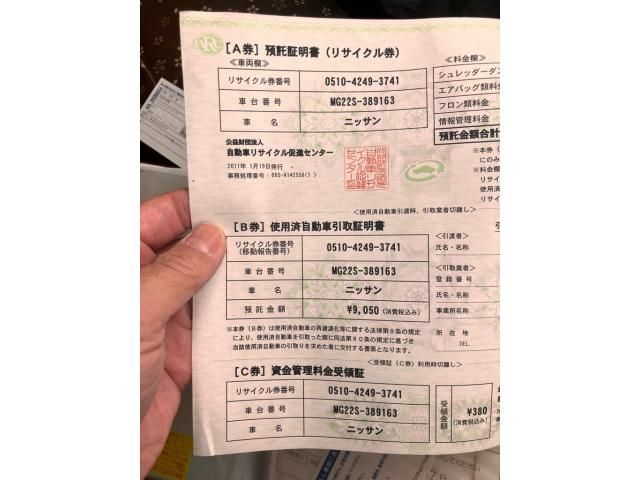 JARC
[A券] 預託証明書(リサイクル券)
≪車両欄≫
≪料金欄≫
リサイクル券番号 0510-4249-3741
車台番号 MG22S-389163
車名 ニッサン
シュレッダーダス
エアバッグ類料金
フロン類料金
情報管理料金
預託金額合計
公益財団法人
自動車リサイクル促進センター
2011年 1月19日発行
事務処理番号:005-A142556(1)
※本券(
にのみ
※料金欄
リサイ
使用済
リサイ
<使用済自動車引渡時、引取業者切離し>
[B券] 使用済自動車引取証明書
リサイクル券番号 (移動報告番号) 0510-4249-3741
車台番号 MG22S-389163
車名 ニッサン
預託金額 ¥9,050 (消費税込み)
引
<引渡者>
氏名・名称
<引取業者>
登録番号
氏名・名称
事業所名称
所在地
TEL.
※本券(B券)は使用済自動車の再資源化等に関する法律第9条の規定
により、使用済自動車を引取った際に同法第80条の規定に基づき
当該使用済自動車の引取りを求めた者に交付する書面となります。
<受領証(C券)利用時切離し>
[C券] 資金管理料金受領証
リサイクル券番号 0510-4249-3741
車台番号 MG22S-389163
車名 ニッサン
受領金額 ¥380 (消費税込み)